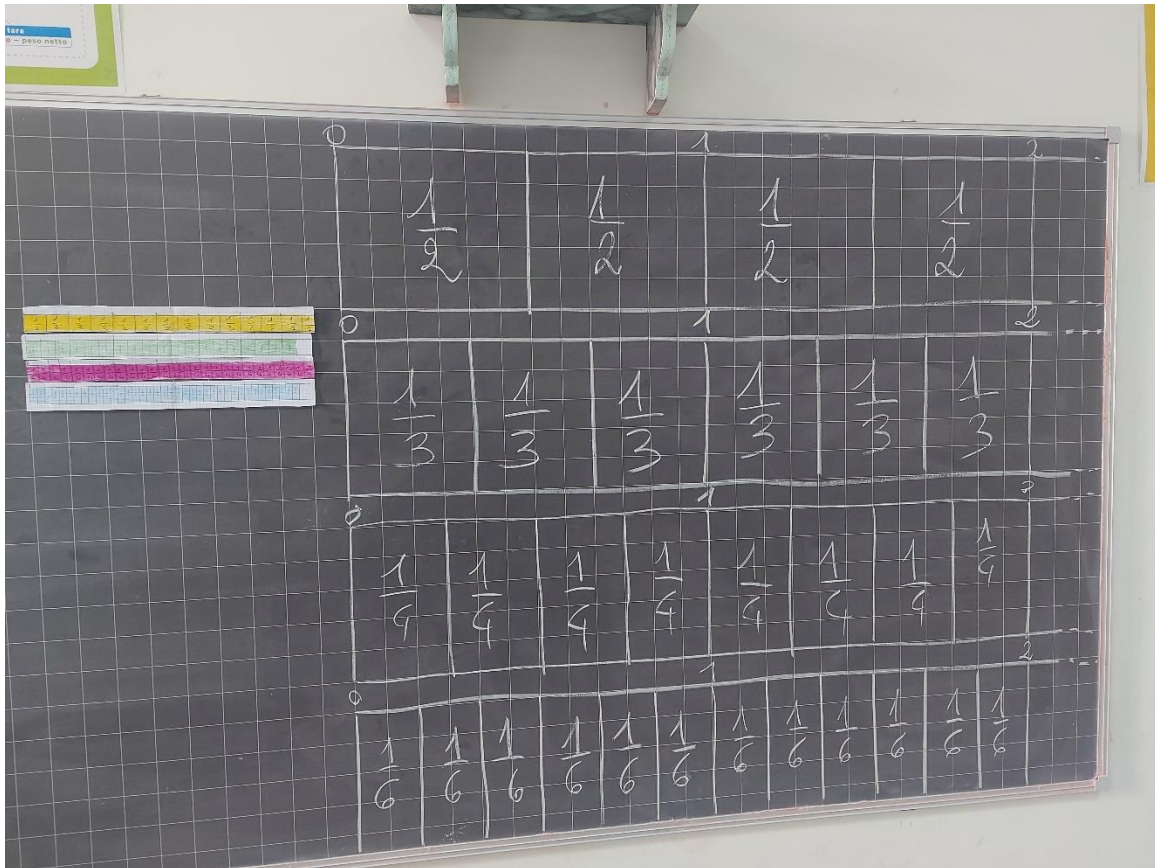 tara
o – peso netto
0 1 2
1/2 1/2 1/2 1/2
0 1 2
1/3 1/3 1/3 1/3 1/3 1/3
0 1 2
1/4 1/4 1/4 1/4 1/4 1/4 1/4 1/4
0 1 2
1/6 1/6 1/6 1/6 1/6 1/6 1/6 1/6 1/6 1/6 1/6 1/6